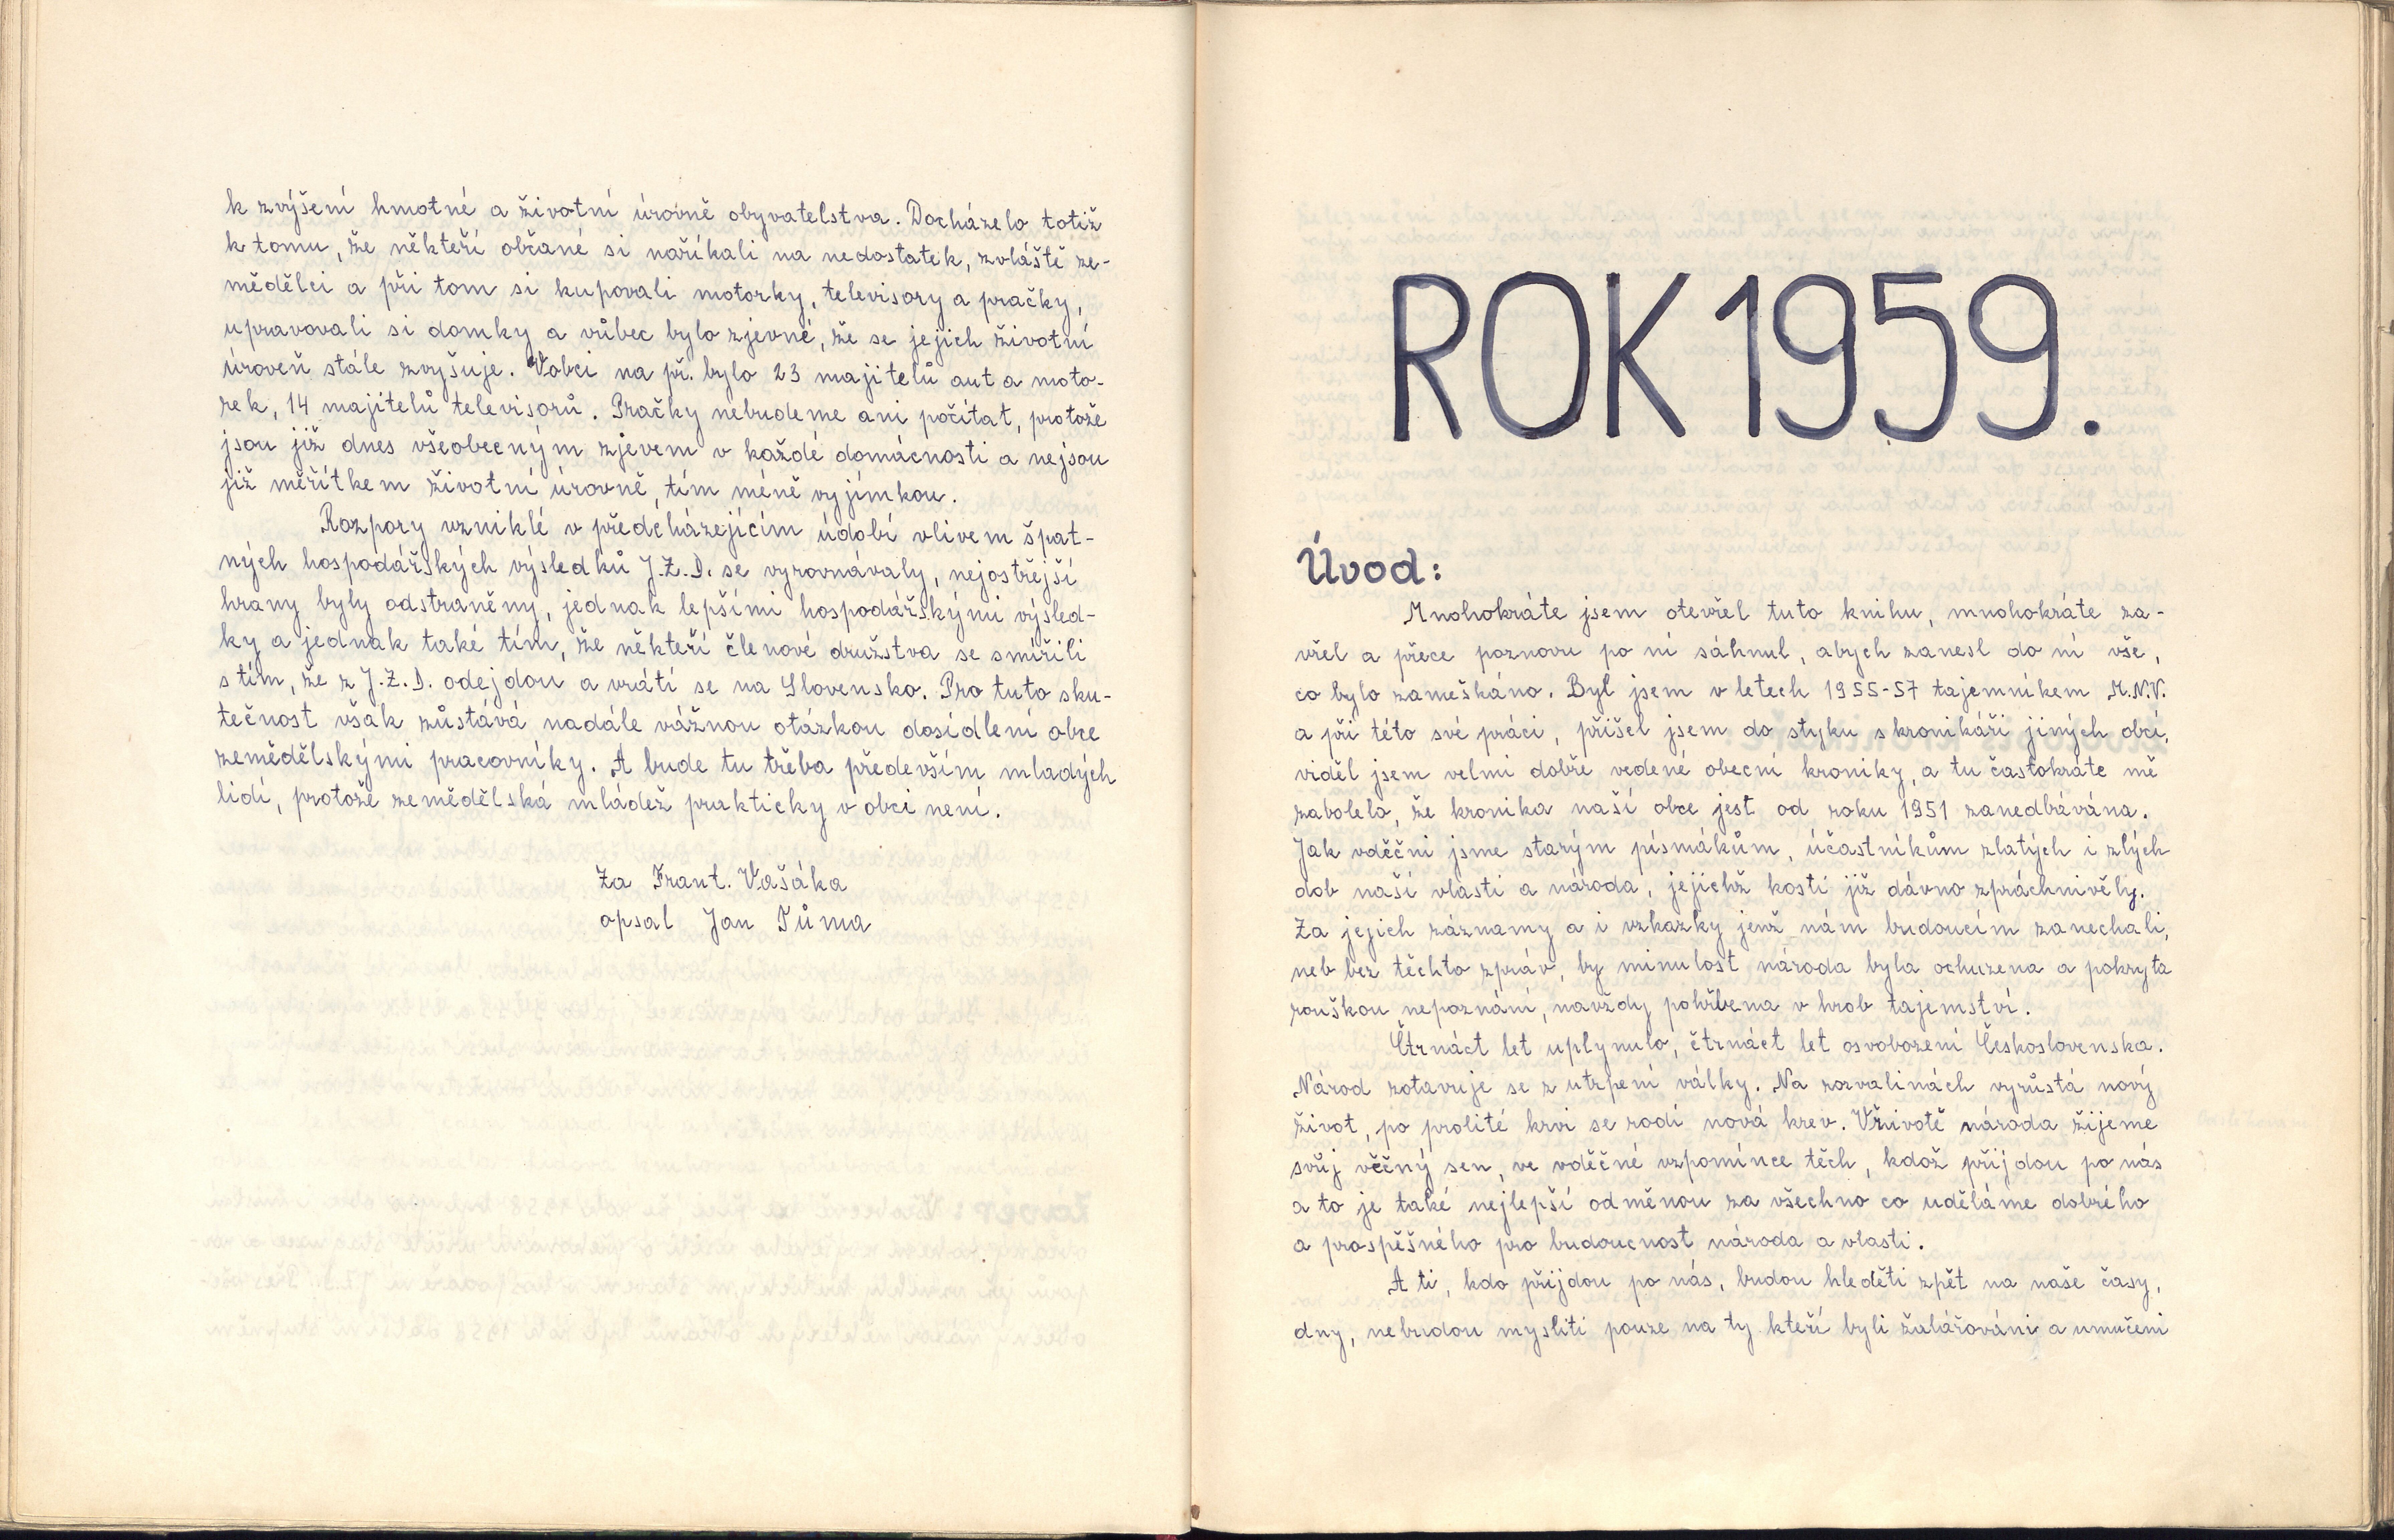 k zvýšení hmotné a životní úrovně obyvatelstva. Docházelo totiž
k tomu, že někteří občané si naříkali na nedostatek, zvláště ze-
mědělci a při tom si kupovali motorky, televisory a pračky,
upravovali si domky a vůbec bylo zjevné, že se jejich životní
úroveň stále zvyšuje. V obci na př. bylo 23 majitelů aut a moto-
rek, 14 majitelů televisorů. Pračky nebudeme ani počítat, protože
jsou již dnes všeobecným zjevem v každé domácnosti a nejsou
již měřítkem životní úrovně, tím méně vyjímkou.
Rozpory vzniklé v předcházejícím údobí vlivem špat-
ných hospodářských výsledků J.Z.D. se vyrovnávaly, nejostřejší
hrany byly odstraněny, jednak lepšími hospodářskými výsled-
ky a jednak také tím, že někteří členové družstva se smířili
s tím, že z J.Z.D. odejdou a vrátí se na Slovensko. Pro tuto sku-
tečnost však zůstává nadále vážnou otázkou dosídlení obce
zemědělskými pracovníky. A bude tu třeba především mladých
lidí, protože zemědělská mládež prakticky v obci není.
Za Frant. Vašáka
opsal Jan Tůma
ROK 1959.
Úvod:
Mnohokráte jsem otevřel tuto knihu, mnohokráte za-
vřel a přece poznovu po ní sáhnul, abych zanesl do ní vše,
co bylo zameškáno. Byl jsem v letech 1955-57 tajemníkem M.N.V.
a při této své práci, přišel jsem do styku s kronikáři jiných obcí,
viděl jsem velmi dobře vedené obecní kroniky, a tu častokráte mě
zabolelo, že kronika naší obce jest od roku 1951 zanedbávána.
Jak vděčni jsme starým písmákům, účastníkům zlatých i zlých
dob naší vlasti a národa, jejichž kosti již dávno zpráchnivěly.
Za jejich záznamy a i vzkazky jenž nám budoucím zanechali,
neb bez těchto zpráv, by minulost národa byla ochuzena a pokryta
rouškou nepoznání, navždy pohřbena v hrob tajemství.
Čtrnáct let uplynulo, čtrnáct let osvobození Československa.
Národ zotavuje se z utrpení války. Na rozvalinách vyrůstá nový
život, po prolité krvi se rodí nová krev. V životě národa žijeme
svůj věčný sen, ve vděčné vzpomínce těch, kdož přijdou po nás
a to je také nejlepší odměnou za všechno co uděláme dobrého
a prospěšného pro budoucnost národa a vlasti.
A ti, kdo přijdou po nás, budou hleděti zpět na naše časy,
dny, nebudou mysliti pouze na ty kteří byli žalářováni a umučeni